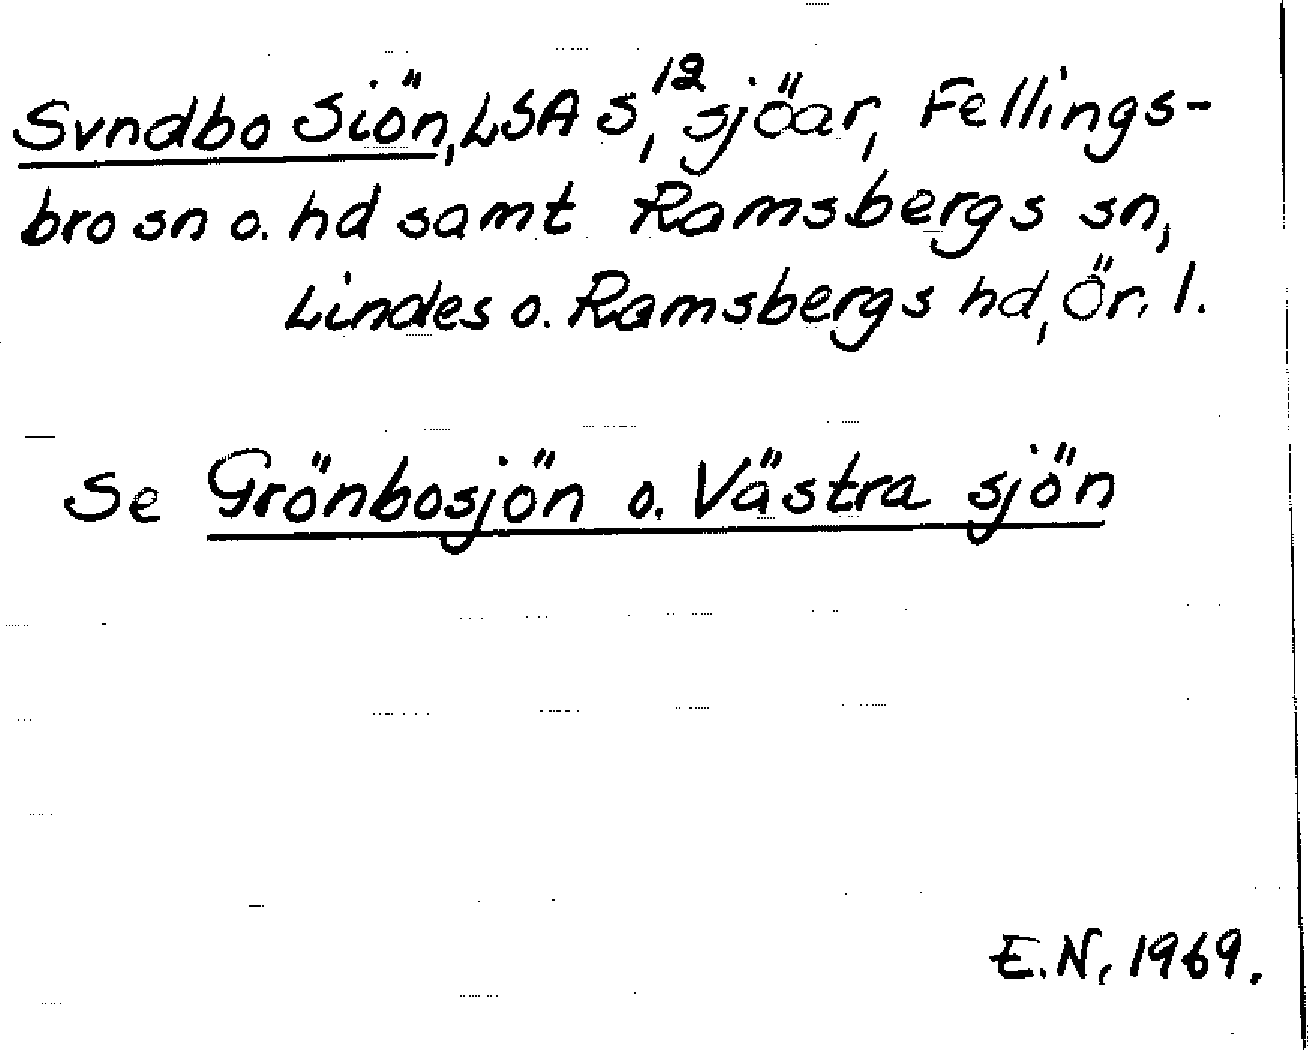 Svndbo Siön, LSA S¹², sjöar, Fellings-
bro sn o. hd samt Ramsbergs sn,
Lindes o. Ramsbergs hd, Ör. l.
Se Grönbosjön o. Västra sjön
E.N. 1969.